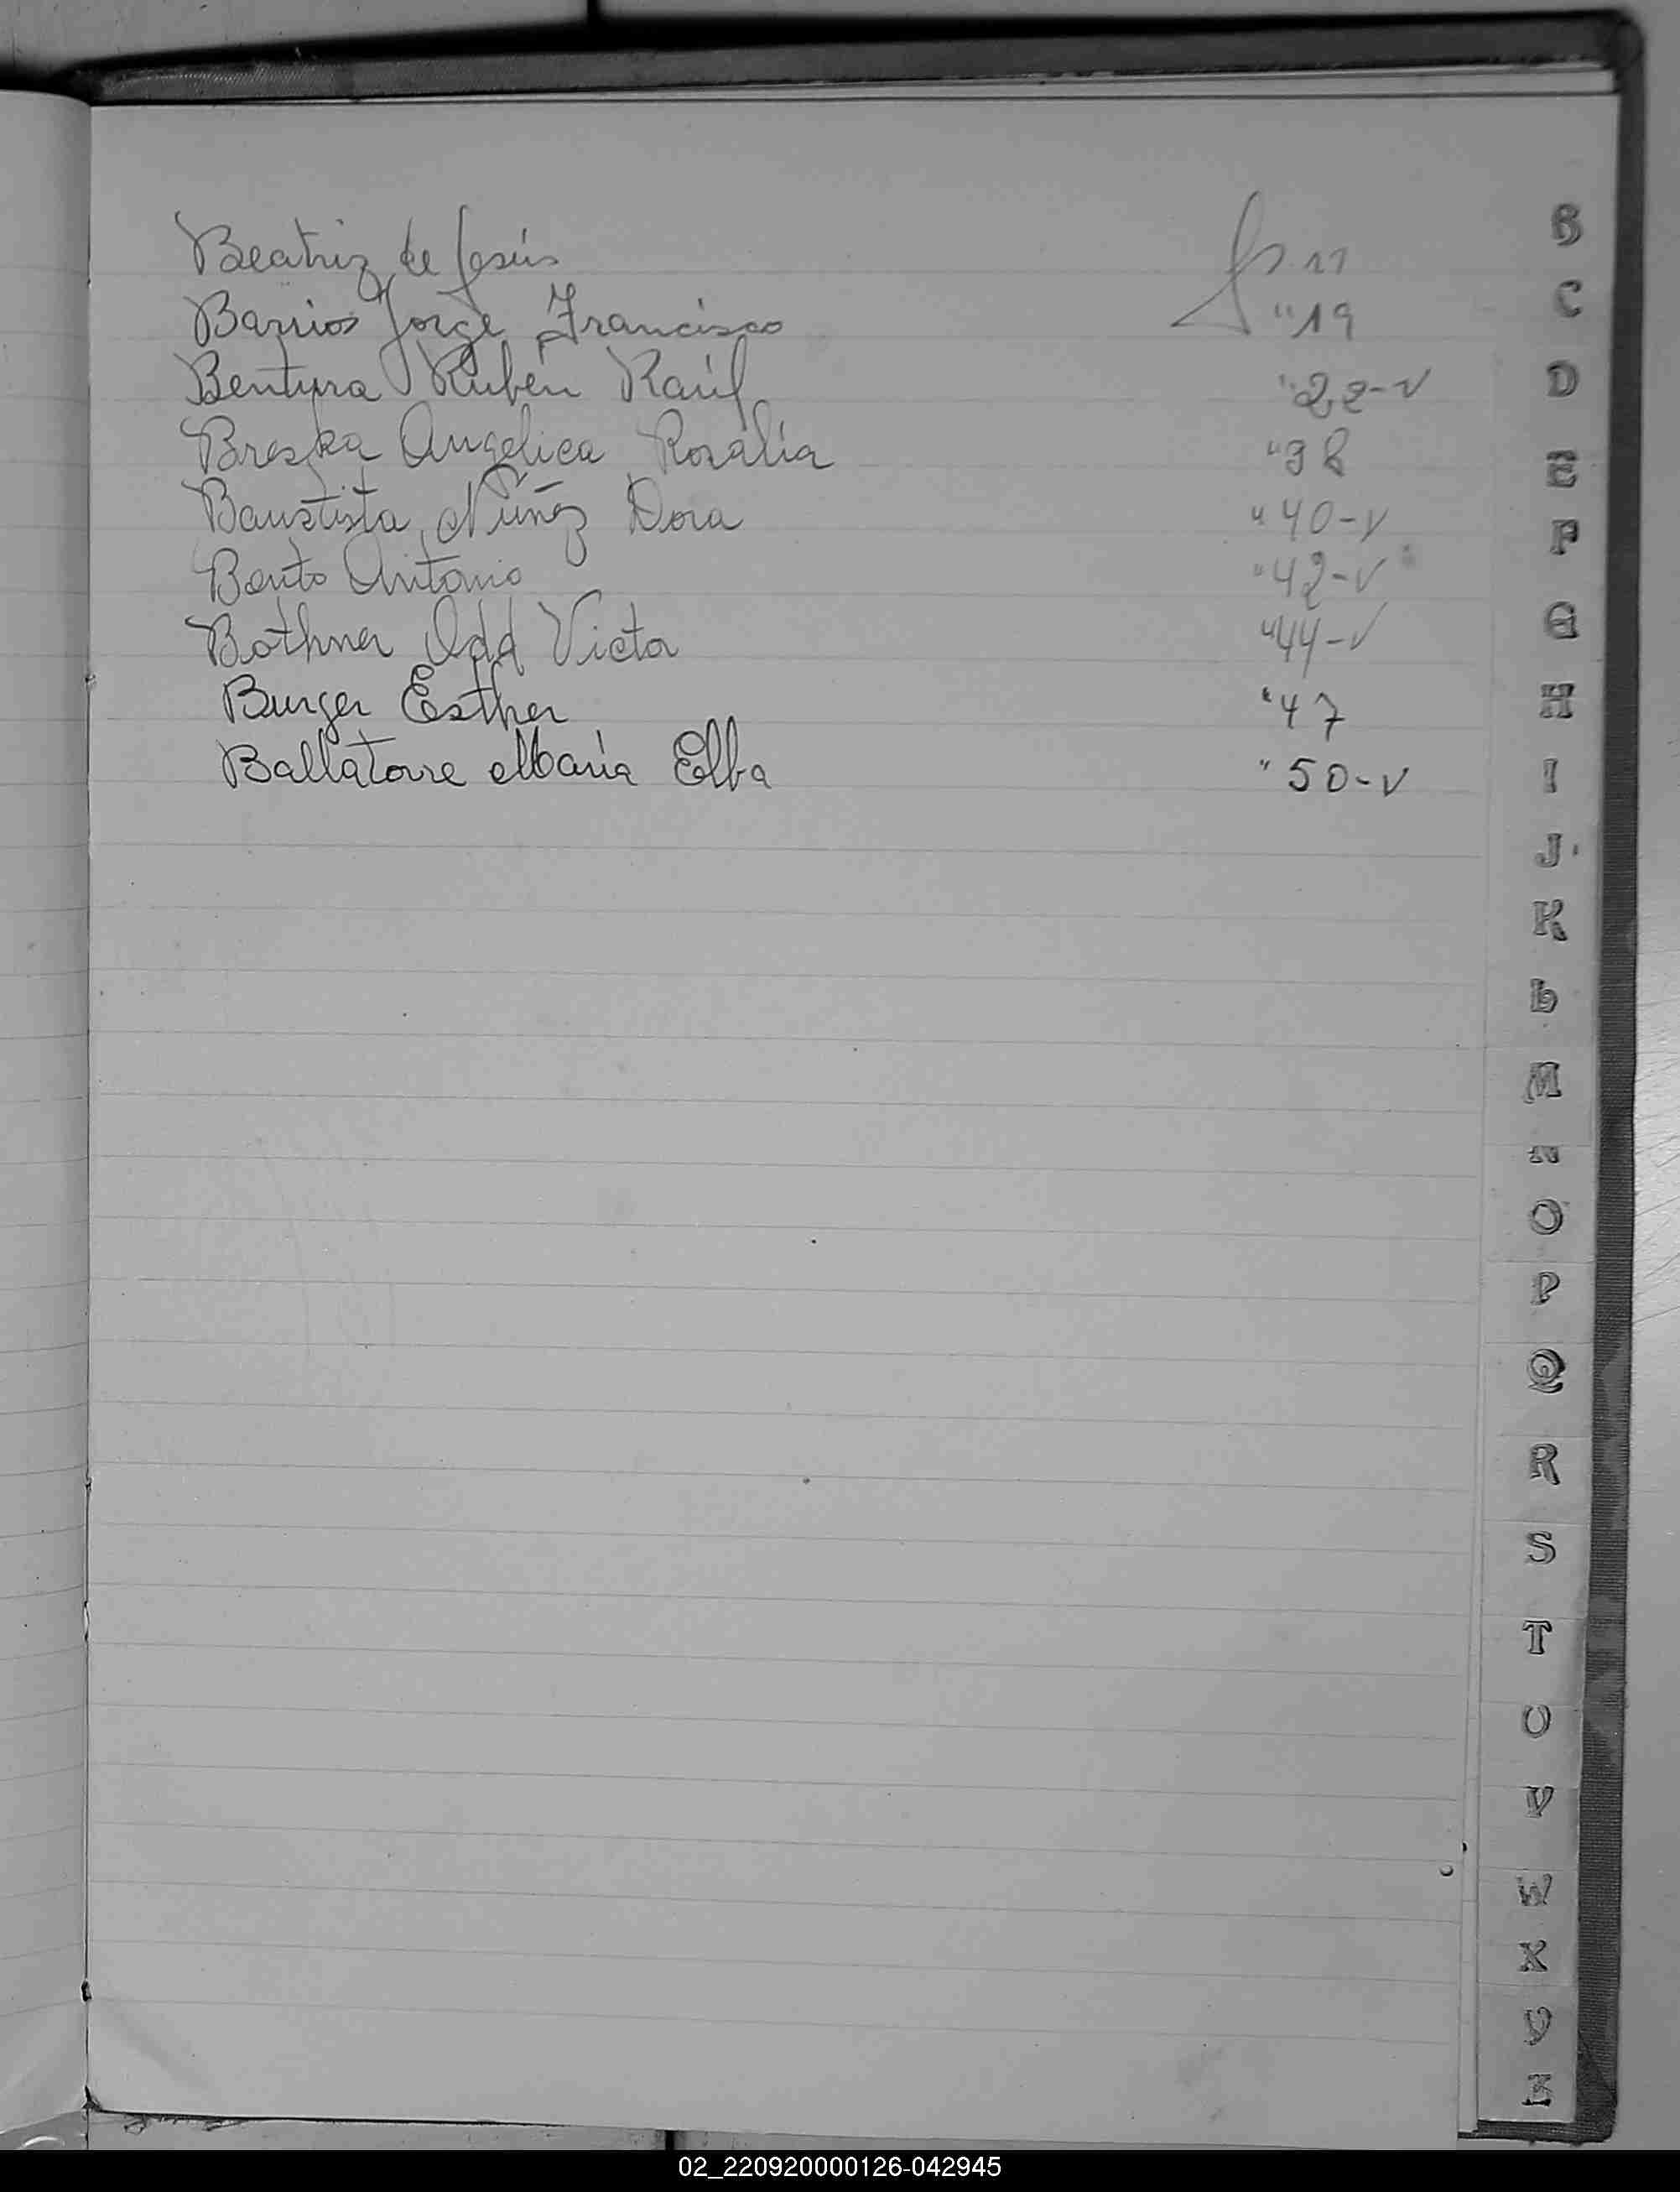 Beatriz de Jesús fs. 11
Barrios Jorge Francisco "19
Bentura Rubén Raúl "22-v
Breska Angelica Rosalía "38
Baustista Núñez Dora "40-v
Bento Antonio "42-v
Bothner Odd Victor "44-v
Burger Esther "47
Ballatore María Elba "50-v
B
C
D
E
F
G
H
I
J
K
L
M
N
O
P
Q
R
S
T
U
V
W
X
Y
Z
02_220920000126-042945